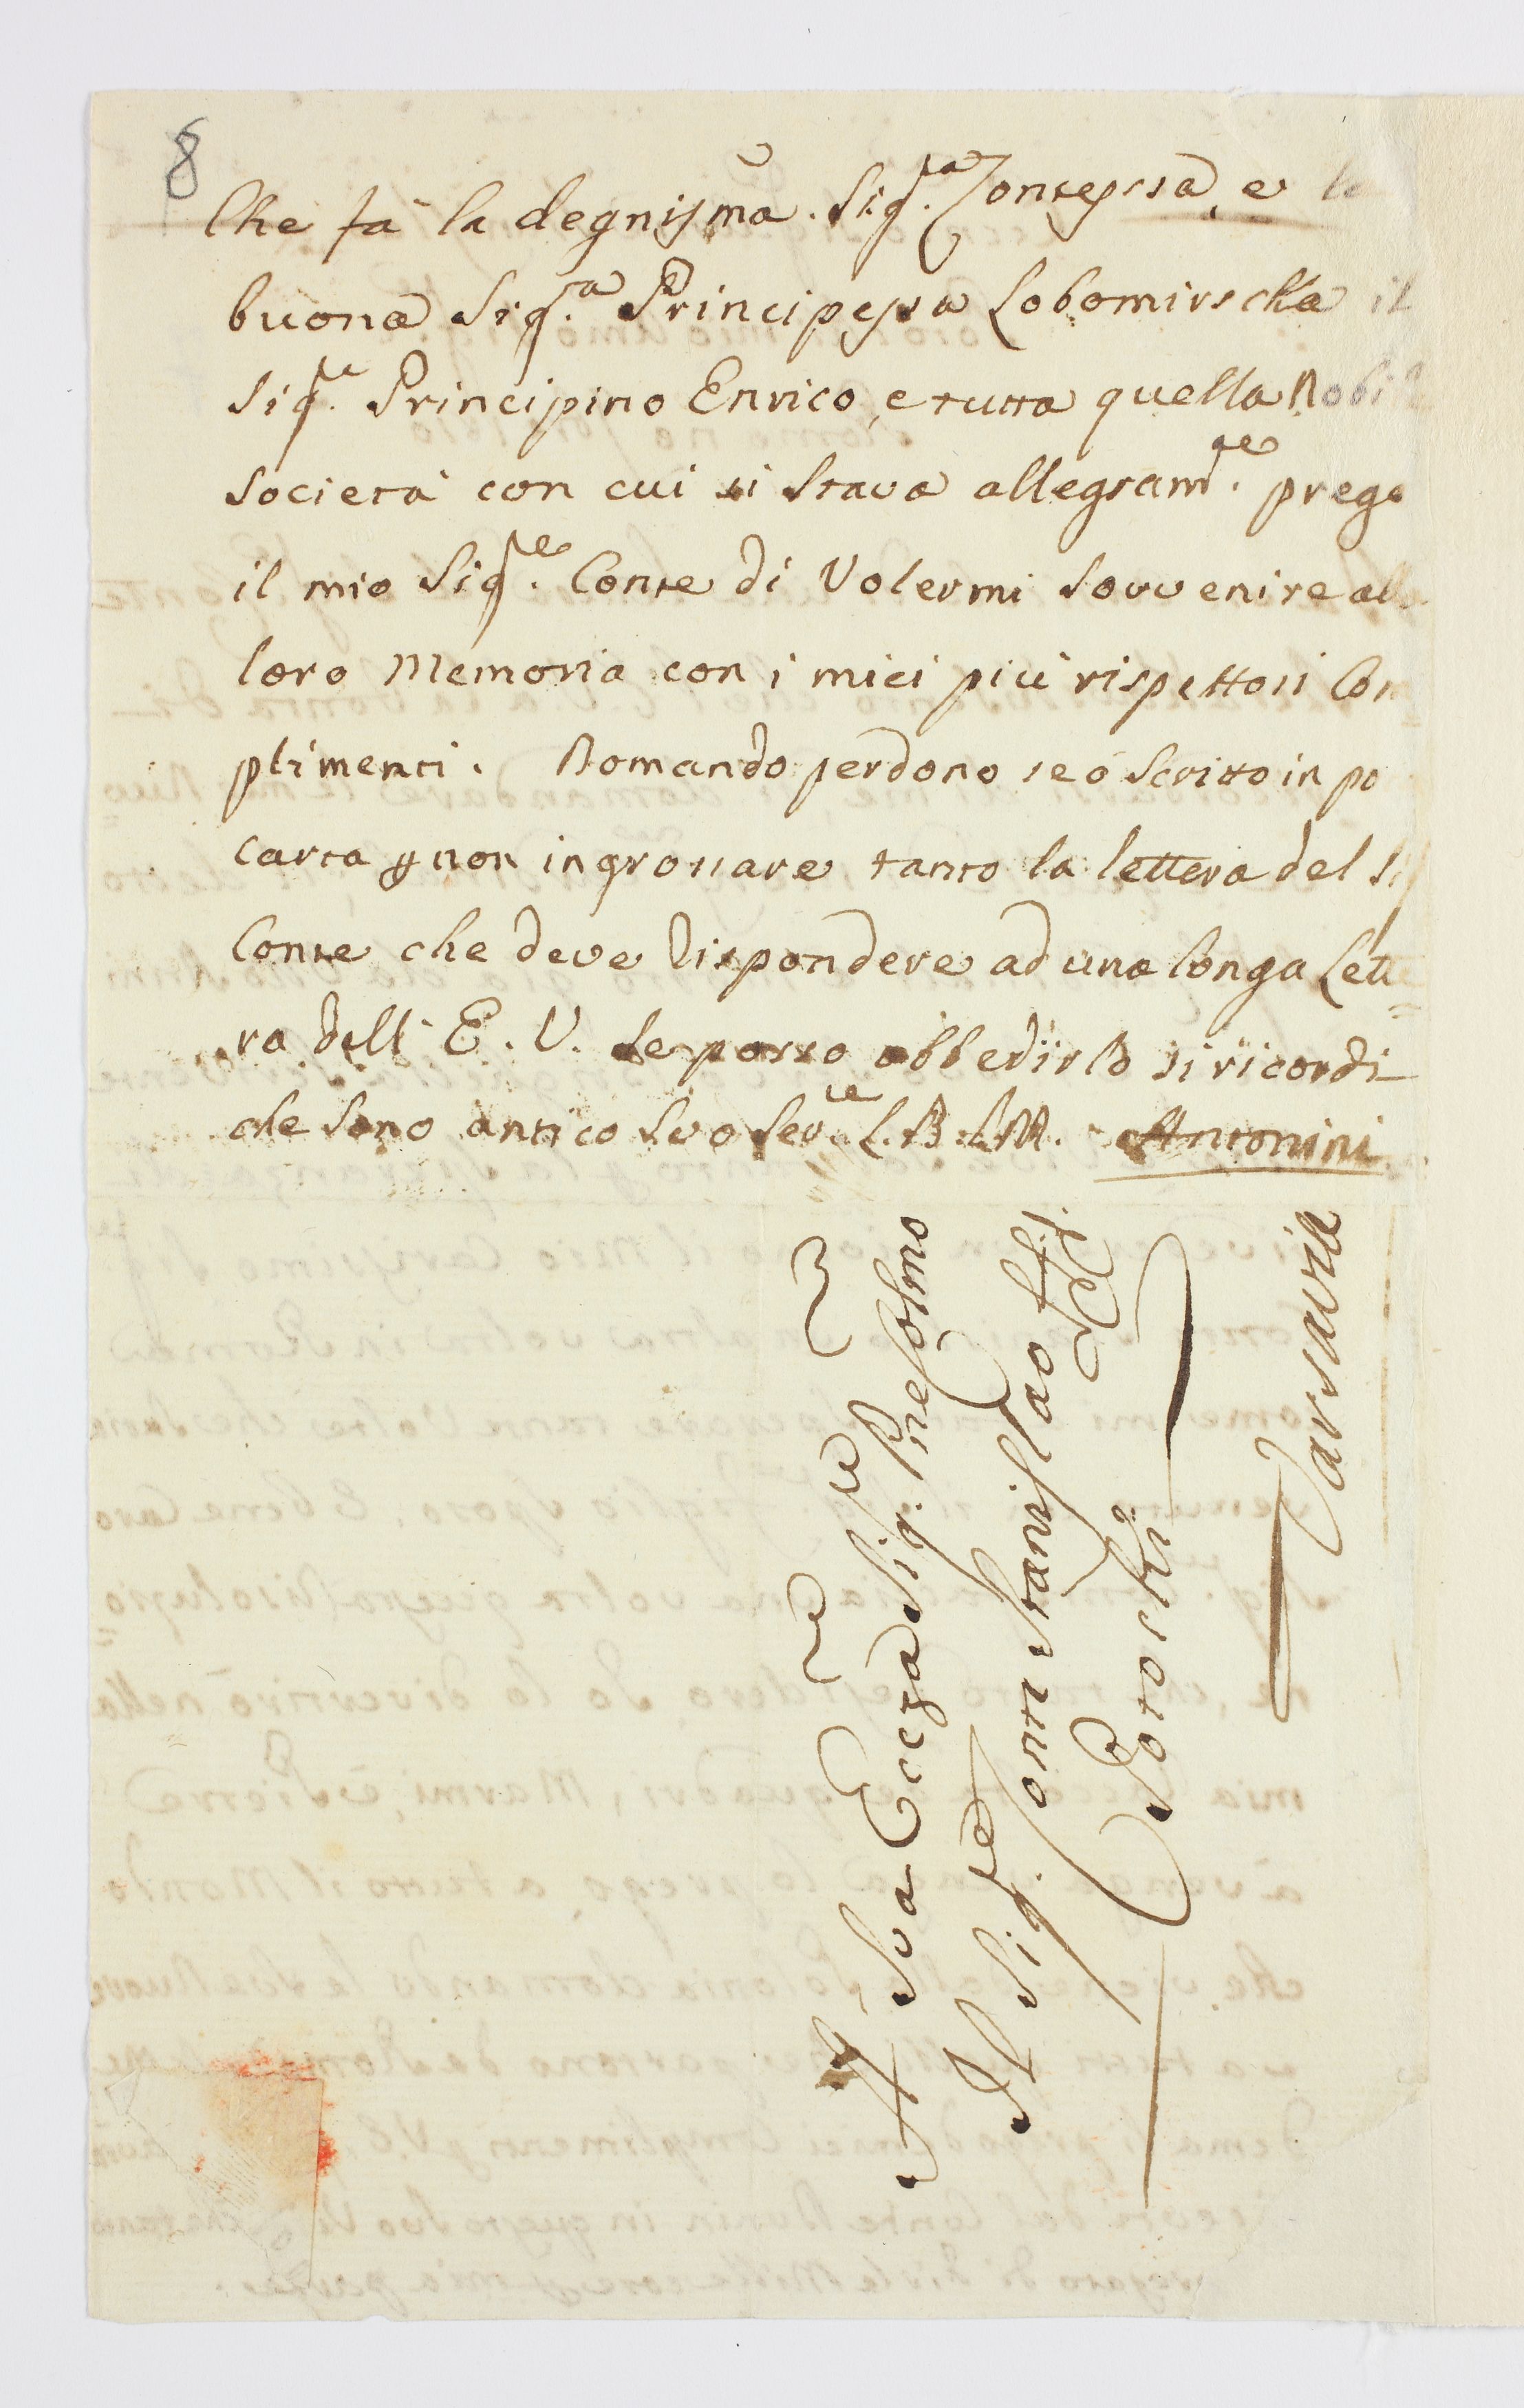 8
Che fà la degnissma. Sig.ra Contessa, e la
buona Sig.ra Principessa Lobomirscka il
Sig.re Principino Enrico, e tutta quella Nobil
società con cui si stava allegram.te prego
il mio Sig.re Conte di Volermi Sovvenire alla
loro Memoria con i miei più rispettosi Com
plimenti. Domando perdono se ò Scritto in po
carta p non ingrossare tanto la lettera del Sig
Conte che deve Rispondere ad una longa Lette=
ra dell' E. V. Se posso obbedirla si ricordi
che sono antico Suo Ser.re L. B. L. M. Antonini
A Sua Eccza Sig.re Pne Colmo
Il Sig.re Conte Stanislao
Potocki
Varsavia